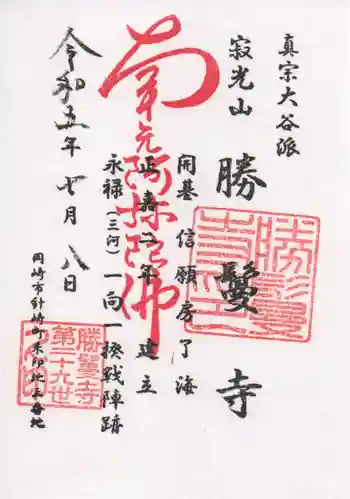 真宗大谷派
寂光山
勝鬘寺
開基 信願房了海
正嘉二年建立
永禄(三河)一向一揆戦陣跡
南無阿弥陀佛
令和五年七月八日
岡崎市針崎町朱印地三番地
勝鬘寺
第二十九世